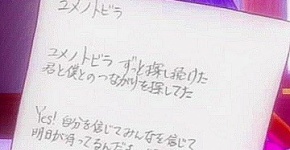 ユメノトビラ
ユメノトビラ ずっと探し続けた
君と僕とのつながりを探してた
Yes! 自分を信じてみんなを信じて
明日が待ってるんだよ